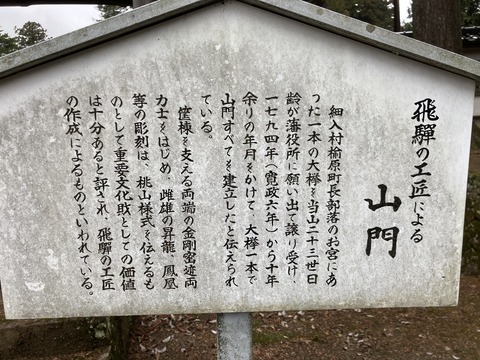 飛騨の工匠による
山門
細入村楡原町長部落のお宮にあ
った一本の大欅を当山二十三世日
齢が藩役所に願い出て譲り受け、
一七九四年(寛政六年)から十年
余りの年月をかけて、大欅一本で
山門すべてを建立したと伝えられ
ている。
筐棟を支える両端の金剛密迹両
力士をはじめ、雌雄の昇龍、鳳凰
等の彫刻は、桃山様式を伝えるも
のとして重要文化財としての価値
は十分あると評され、飛騨の工匠
の作成によるものといわれている。